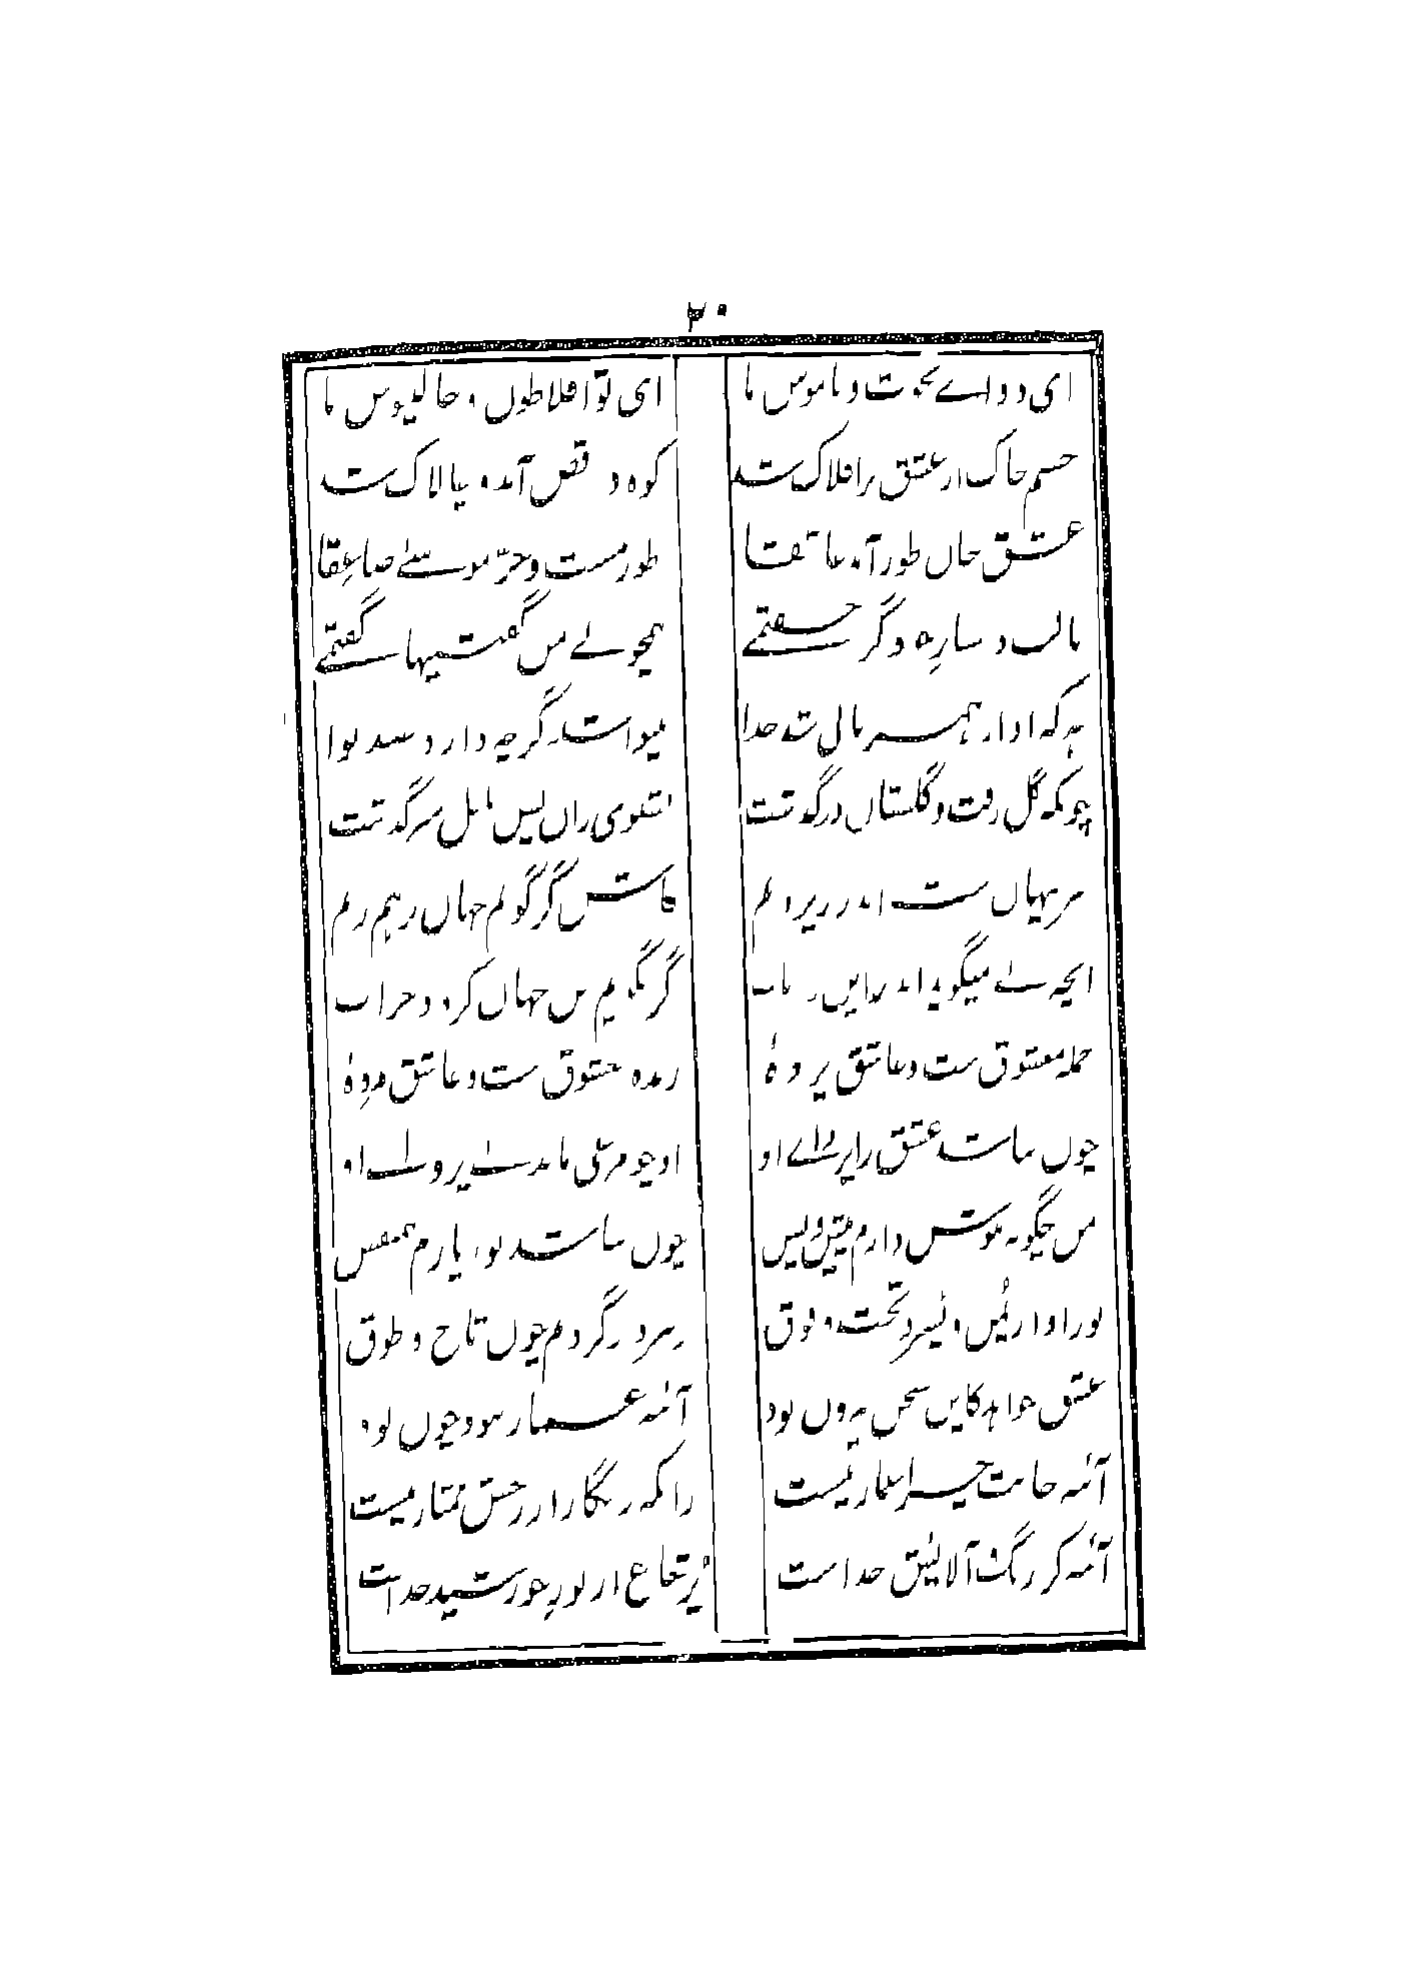 ۳۰
ای دوائے نخوت و ناموس ما
ای تو افلاطوں و جالینوس ما
جسم خاک از عشق بر افلاک شد
کوه در رقص آمد و چالاک شد
عشق جان طور آمد عاشقا
طور مست و خرّ موسیٰ صاعقا
با لب دمساز خود گر جفتمے
همچو نے من گفتنیها گفتمے
هر که او از همزبانی شد جدا
بینوا شد گرچه دارد صد نوا
چونکه گل رفت و گلستاں درگذشت
نشنوی زاں پس ز بلبل سرگذشت
سر پنهاں ست اندر زیر و بم
فاش گر گویم جهاں برهم زنم
آنچه نے میگوید اندر ایں دو باب
گر بگویم من جهاں گردد خراب
جمله معشوق ست و عاشق پردۂ
زنده معشوق ست و عاشق مردۂ
چوں نباشد عشق را پروائے او
او چو مرغی ماند بے پر وائے او
من چگونه هوش دارم پیش و پس
چوں نباشد نور یارم همنفس
نور او از یمن و یسر و تحت و فوق
بر سر و بر گردنم چوں تاج و طوق
عشق خواهد کایں سخن بیروں بود
آئنه غماز نبود چوں بود
آئنه جانت چرا غماز نیست
زانکه زنگار از رخش ممتاز نیست
آئنه کز زنگ آلایش جداست
پُر شعاع از نور خورشید خداست